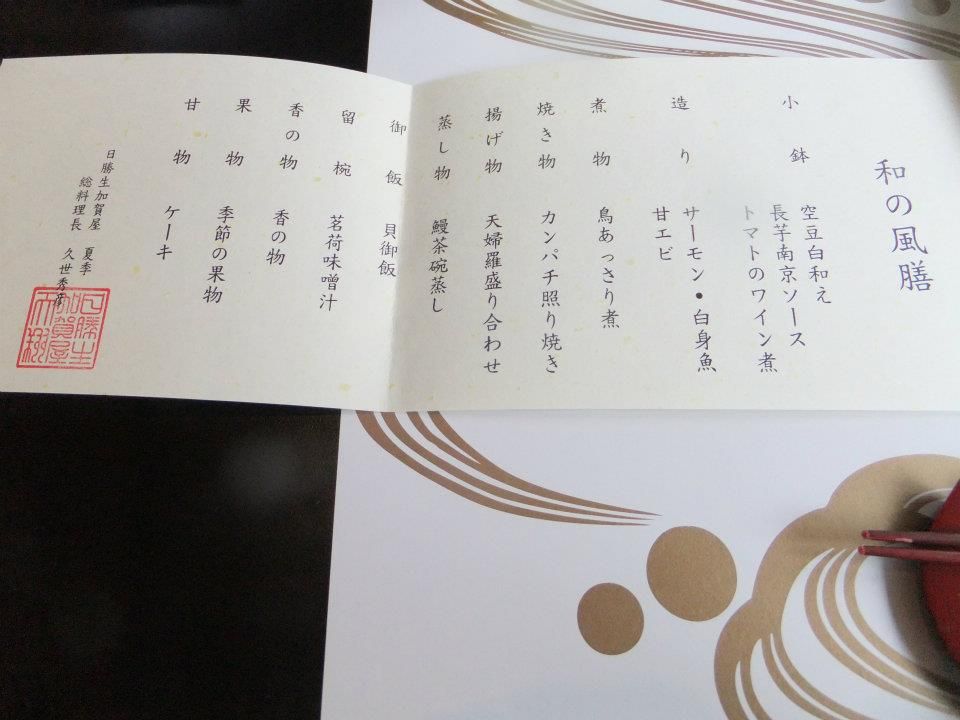 和の風膳
小鉢 空豆白和え
長芋南京ソース
トマトのワイン煮
造り サーモン・白身魚
甘エビ
煮物 鳥あっさり煮
焼き物 カンパチ照り焼き
揚げ物 天婦羅盛り合わせ
蒸し物 鰻茶碗蒸し
御飯 貝御飯
留椀 茗荷味噌汁
香の物 香の物
果物 季節の果物
甘物 ケーキ
日勝生加賀屋 夏季
総料理長 久世秀
日勝生
加賀屋